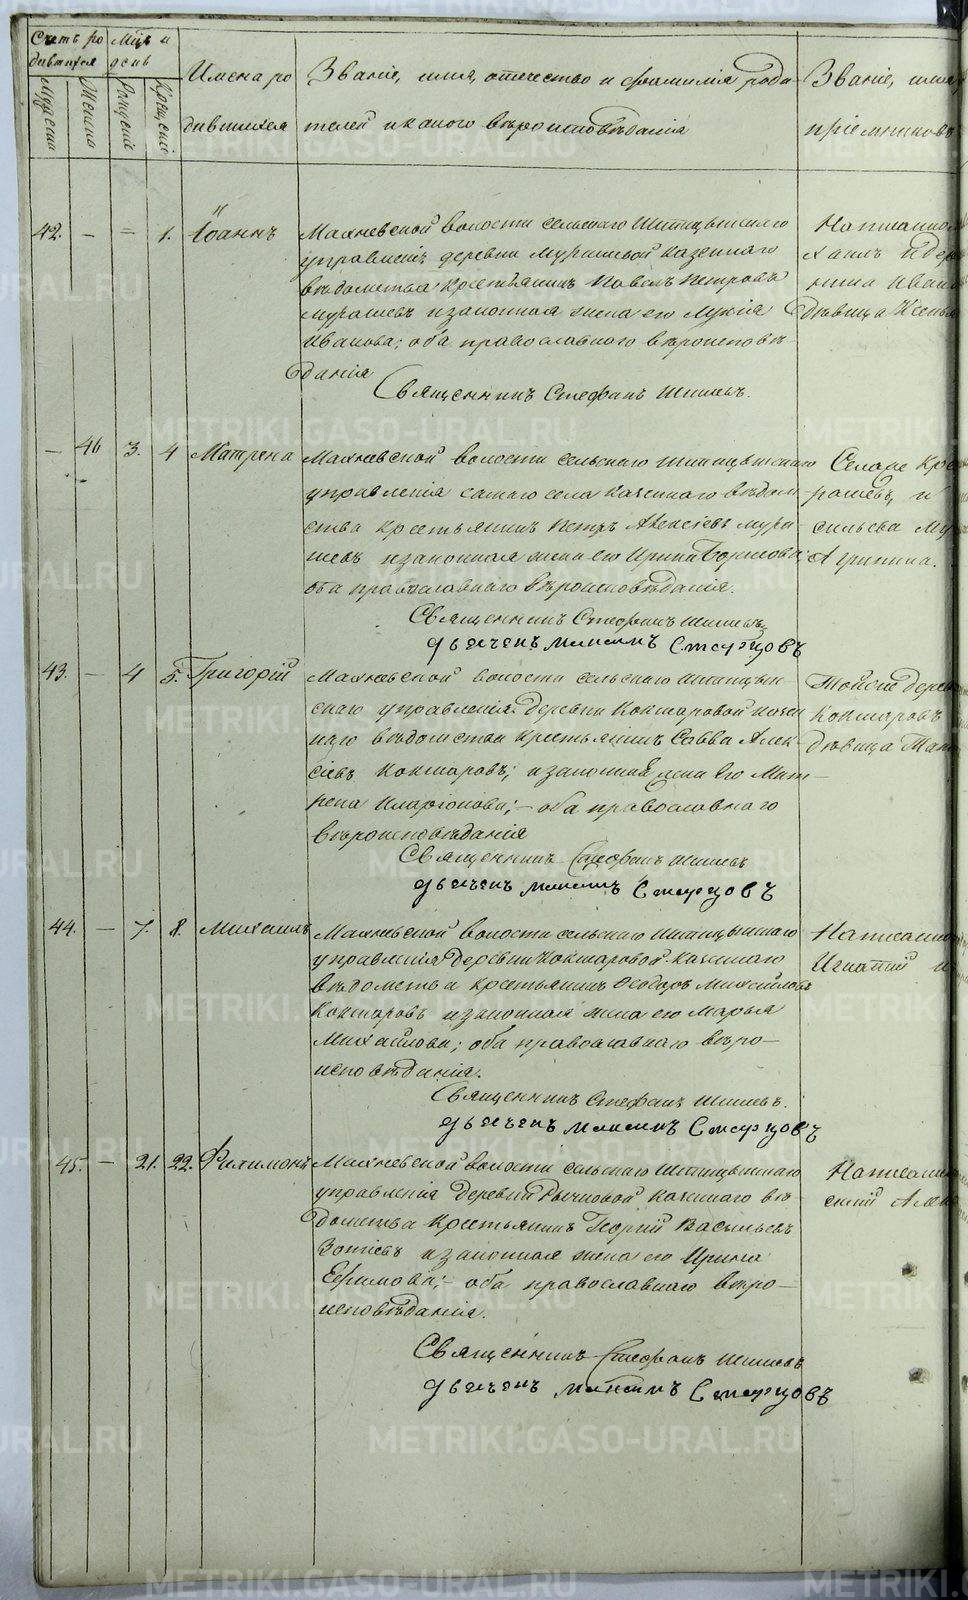 Счетъ ро
дившихся
Мцъ и
день
Мужеска
Женска
Рожденіе
Крещеніе
Имена ро
дившихся
Званіе, имя, отечество и фамилія роди
телей и какого вѣроисповѣданія
Званіе, имя
пріемниковъ
42. — = 1. Іоаннъ
Махневской волости сельскаго
управленія деревни Мурашевой казеннаго
вѣдомства крестьянинъ Павелъ Петровъ
Мурашевъ и законная жена его Лукія
Иванова; оба православнаго вѣроисповѣ
данія
Священникъ Стефанъ
девица Ксенья
— 46 3. 4 Матрена
Махневской волости сельскаго
управленія самаго села казеннаго вѣдом
ства крестьянинъ Петръ Алексіевъ Мура
шевъ и законная жена его Ирина Борисова
оба православнаго вѣроисповѣданія.
Священникъ Стефанъ
дьячекъ Максимъ Старцовъ
Селаже Кре
рашевъ, и
сильева Му
Агрипина.
43. — 4 5. Григорій
Махневской волости сельскаго
скаго управленія деревни Кокшаровой казен
наго вѣдомства крестьянинъ Савва Алек
сіевъ Кокшаровъ; и законная жена его Мат
рена Иларіонова; — оба православнаго
вѣроисповѣданія
Священникъ Стефанъ
дьячекъ Максимъ Старцовъ
Тойже дерев
Кокшаровъ
девица Тать
44. — 7. 8. Михаилъ
Махневской волости сельскаго
управленія деревни Кокшаровой казеннаго
вѣдомства крестьянинъ Феодоръ Михайловъ
Кокшаровъ и законная жена его Марья
Михайлова; оба православнаго вѣро—
исповѣданія.
Священникъ Стефанъ
дьячекъ Максимъ Старцовъ
Написанной
Игнатій и
45. — 21. 22. Филимонъ
Махневской волости сельскаго
управленія деревни казеннаго вѣ
домства крестьянинъ Георгій Васильевъ
Зотіевъ и законная жена его Ирина
Ефимова; — оба православнаго вѣро—
исповѣданія.
Священникъ Стефанъ
дьячекъ Максимъ Старцовъ
METRIKI.GASO-URAL.RU